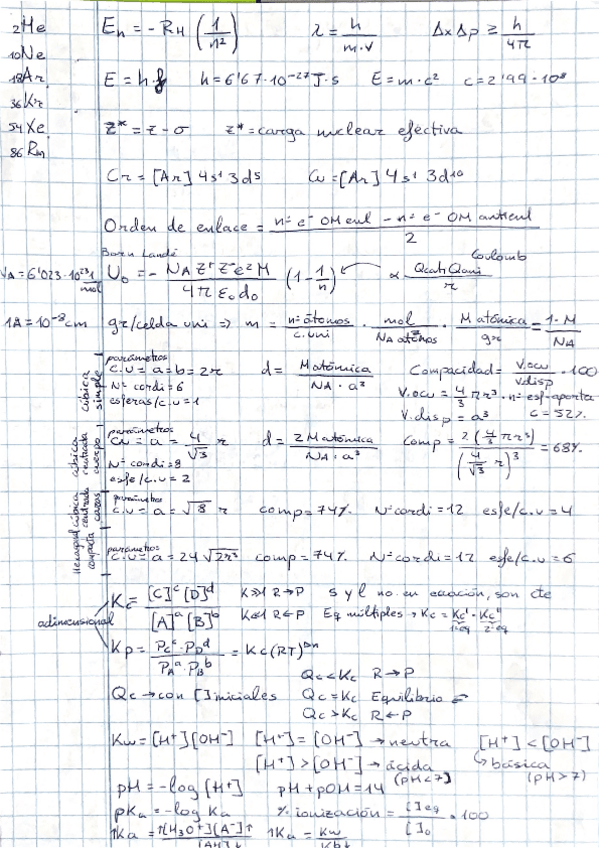 ₂He
₁₀Ne
₁₈Ar
₃₆Kr
₅₄Xe
₈₆Rn
Eₙ = - R_H (1/n²)   λ = h/(m·v)   Δx Δp ≥ h/4π
E = h·f   h = 6'67·10⁻²⁷ J·s   E = m·c²   c = 2'99·10⁸
z* = z - σ   z* = carga nuclear efectiva
Cr = [Ar] 4s¹ 3d⁵   Cu = [Ar] 4s¹ 3d¹⁰
Orden de enlace = (nº e⁻ OM enl - nº e⁻ OM antienl)/2
Born Landé
NA = 6'023·10²³ 1/mol   U₀ = - (N_A Z⁺ Z⁻ e² M)/(4π ε₀ d₀) (1 - 1/n)   ∝ (Qcat·Qani)/r   Coulomb
1Å = 10⁻⁸ cm   gr/celda uni => m = nº átomos/c.uni · mol/NA átomos · M atómica/gr = 1·M/NA
cúbica simple
parámetros
c.u = a = b = 2r   d = M atómica/(NA·a³)   Compacidad = V.ocu/V.disp · 100
Nº cordi = 6   V.ocu = 4/3 π r³ · nº esf-aporta
esferas/c.u = 1   V.disp = a³   C = 52%
cúbica centrada cuerpo
parámetros
cu = a = 4/√3 r   d = 2 M atómica/(NA·a³)   comp = 2(4/3 π r³)/(4/√3 r)³ = 68%
Nº cordi = 8
esfe/c.u = 2
cúbica centrada caras
parámetros
c.u = a = √8 r   comp = 74%   Nº cordi = 12   esfe/c.u = 4
Hexagonal compacta
parámetros
c.u = a = 24 √2 r³   comp = 74%   Nº cordi = 12   esfe/c.u = 6
adimensional
Kc = [C]ᶜ [D]ᵈ/[A]ᵃ [B]ᵇ   K≫1 R→P   s y l no en ecuación, son cte
K≪1 R←P   Eq múltiples → Kc = Kc'·Kc''
1ºeq   2ºeq
Kp = Pcᶜ·P_Dᵈ/P_Aᵃ·P_Bᵇ = Kc(RT)^Δn
Qc < Kc   R→P
Qc → con [ ] iniciales   Qc = Kc   Equilibrio
Qc > Kc   R←P
Kw = [H⁺][OH⁻]   [H⁺] = [OH⁻] → neutra   [H⁺] < [OH⁻]
[H⁺] > [OH⁻] → ácida   ↳ básica
(pH<7)   (pH>7)
pH = -log [H⁺]   pH + pOH = 14
pKa = -log Ka   % ionización = [ ]eq/[ ]₀ · 100
↑Ka = ↑[H₃O⁺][A⁻]↑/[AH]↓   ↑Ka = Kw/Kb↓